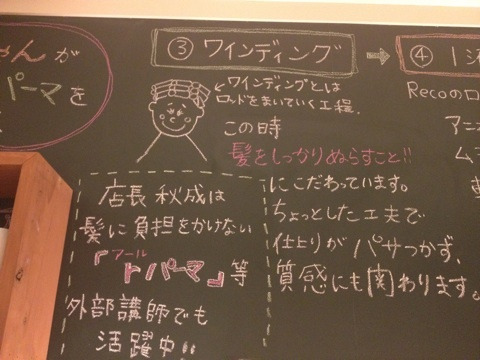 ゃんが
パーマを
③ ワインディング
→
④ 1
ワインディングとは
ロッドをまいていく工程。
この時
髪をしっかりぬらすこと!!
にこだわっています。
ちょっとした工夫で
仕上りがパサつかず、
質感にも関わります。
店長 秋成は
髪に負担をかけない
アール
『トパーマ』等
外部講師でも
活躍中!!
Recoのロ
アニ
ム